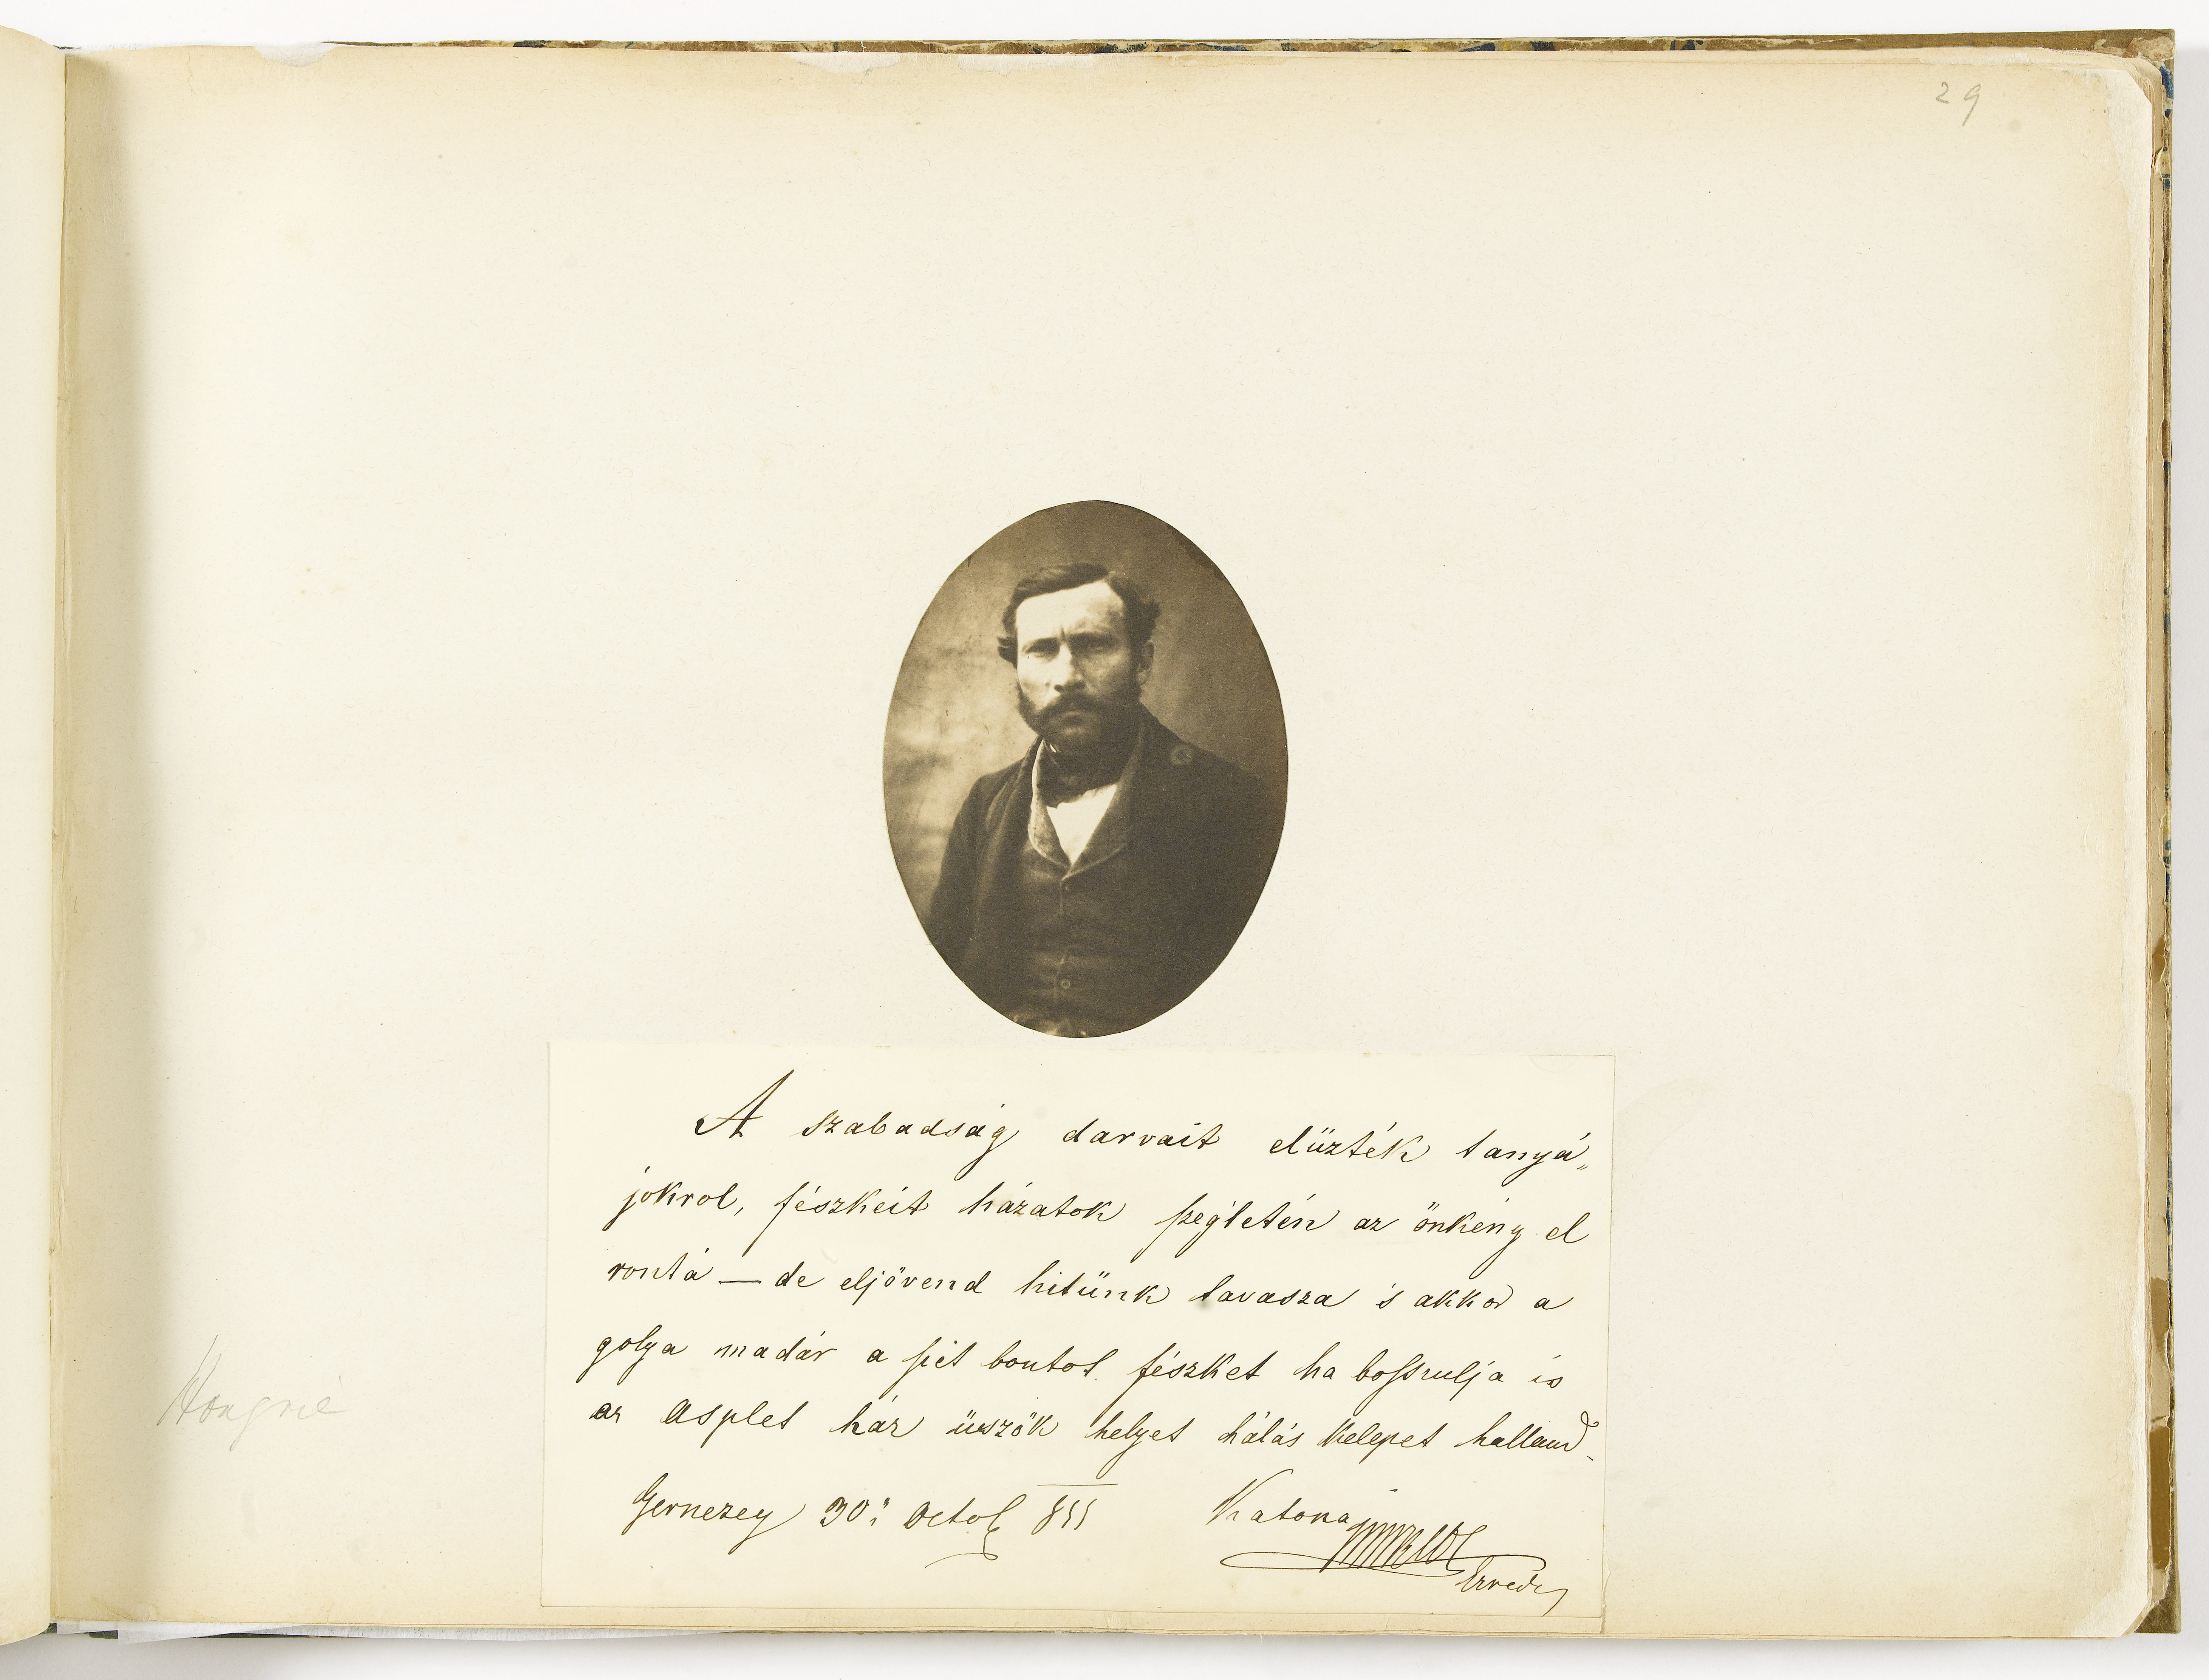 29
A szabadság darvait elüzték tanyá„
jokrol, fészkeit házatok szegletén az önkény el
rontá — de eljövend hitünk tavasza s akkor a
golya madár a szét bontot fészket ha bosszulja is
az Asylet ház üszök helyet hálás kelepet halland.
Gernezey 30i Octob 855
Katona Miklós
Ezredes
Hongrie